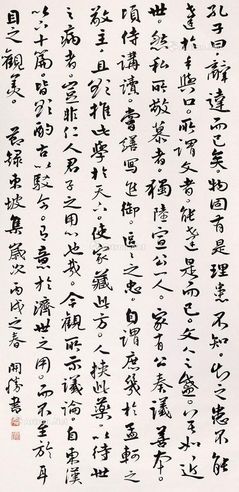 孔子曰辭達而已矣物固有是理患不知知之患不能
達於口與手所謂文者能達是而已文人之盛莫如近
世然私所敬慕者獨陸宣公一人家有公奏議善本
頃侍講讀嘗繕寫進御區區之忠自謂庶幾於孟軻之
敬主且欲推此學於天下使家藏此方人挾此藥以待世
之病者豈非仁人君子之用心也哉今觀所示議論自東漢
以下十篇皆欲酌古以馭今有意於濟世之用而不至於耳
目之觀美 節錄東坡集歲次丙戌之春 開書